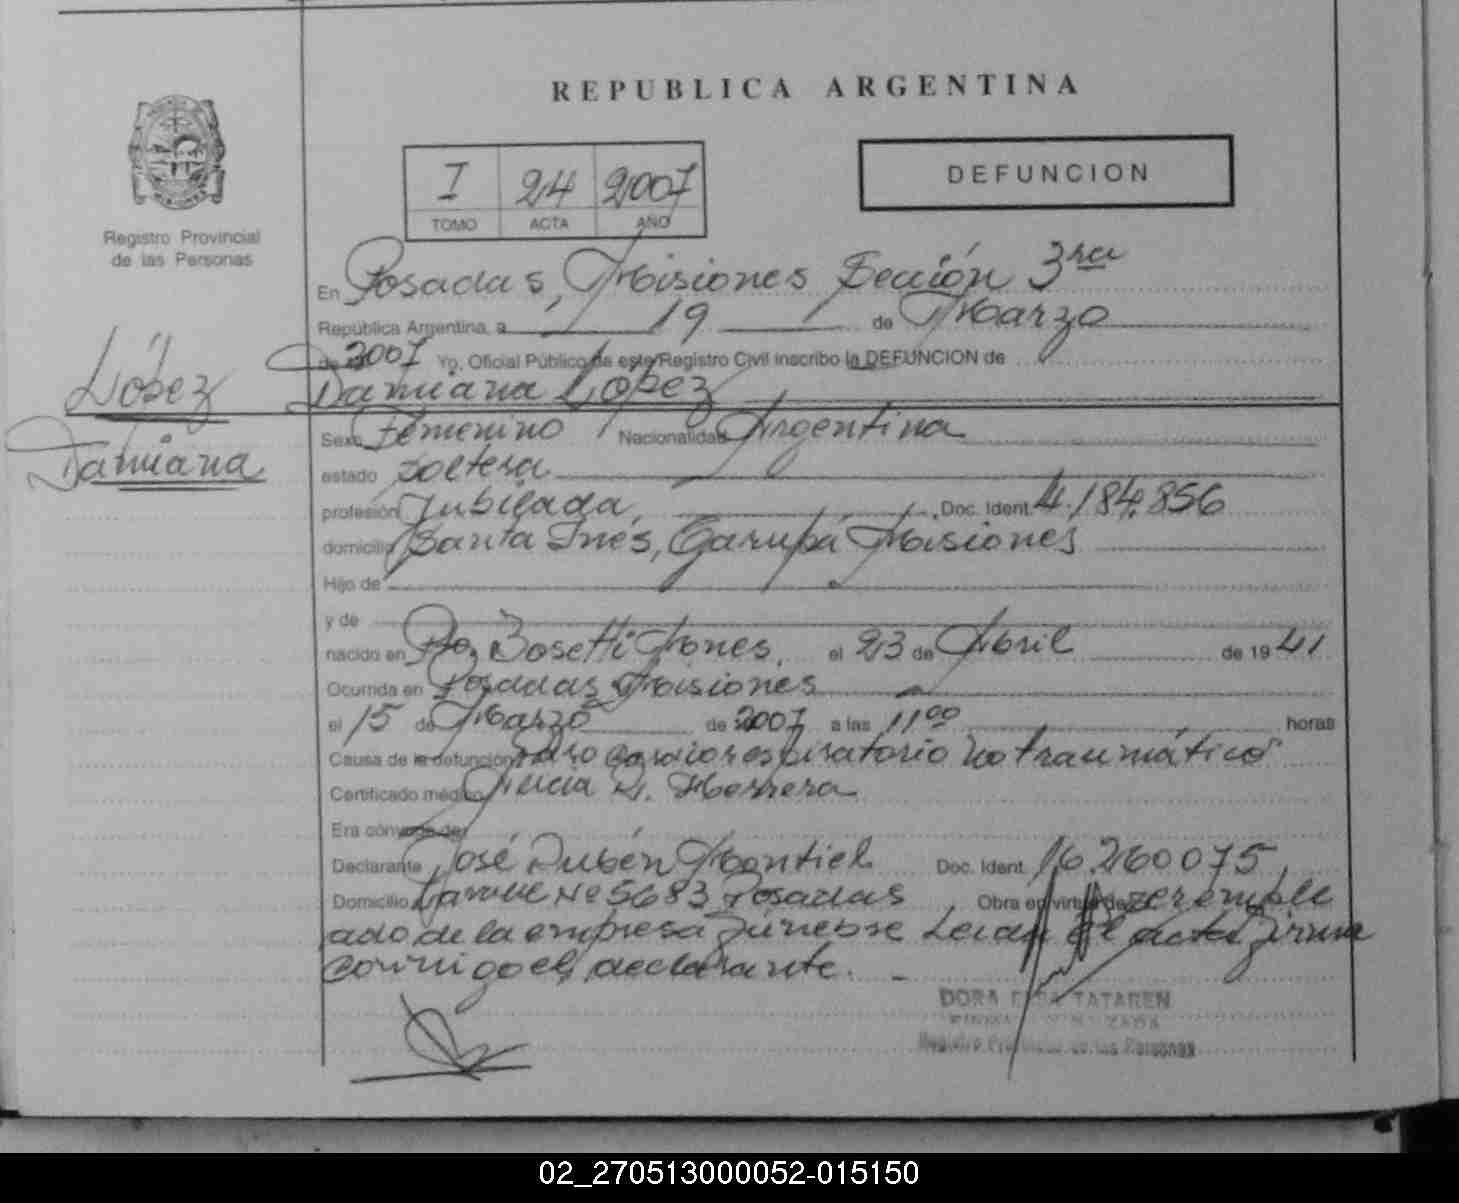 REPUBLICA ARGENTINA
I 24 2007
TOMO ACTA AÑO
DEFUNCION
Registro Provincial
de las Personas
En Posadas, Misiones Sección 3ra
República Argentina, a 19 de Marzo
de 2007 Yo, Oficial Público de este Registro Civil inscribo la DEFUNCION de
Damiana López
López
Damiana
Sexo Femenino Nacionalidad Argentina
estado soltera
profesión Jubilada, Doc. Ident. 4.184.856
domicilio Santa Inés, Garupá Misiones
Hijo de
y de
nacido en Pto, Bosetti Mones, el 23 de Abril de 1941
Ocurrida en Posadas Misiones
el 15 de Marzo de 2007 a las 11 00 horas
Causa de la defunción Paro cardiorespiratorio no traumático
Certificado médico R. Herrera
Era cónyuge de:
Declarante José Rubén Montiel Doc. Ident. 16.260.075
Domicilio Nº 5683 Posadas Obra en virtud de ser emple
ado de la empresa Leida el acta firma
conmigo el declarante.
DORA TATAREN
Registro Provincial de las Personas
02_270513000052-015150